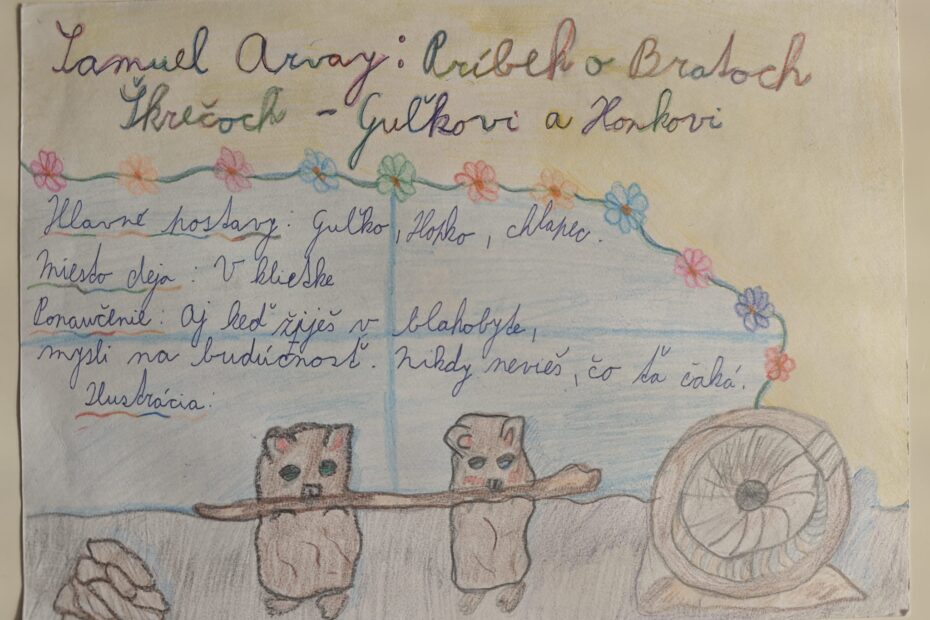 Samuel Arvay: Príbeh o Bratoch
Škrečoch - Guľkovi a Honkovi
Hlavné postavy: Guľko, Hopko, chlapec.
Miesto deja: V klietke
Ponaučenie: Aj keď žiješ v blahobyte,
mysli na budúcnosť. Nikdy nevieš, čo ťa čaká.
Ilustrácia: